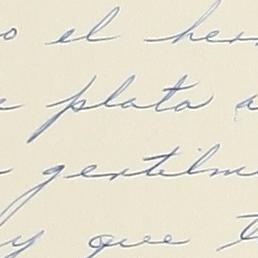 o el her
plata a
gentilm
y que t